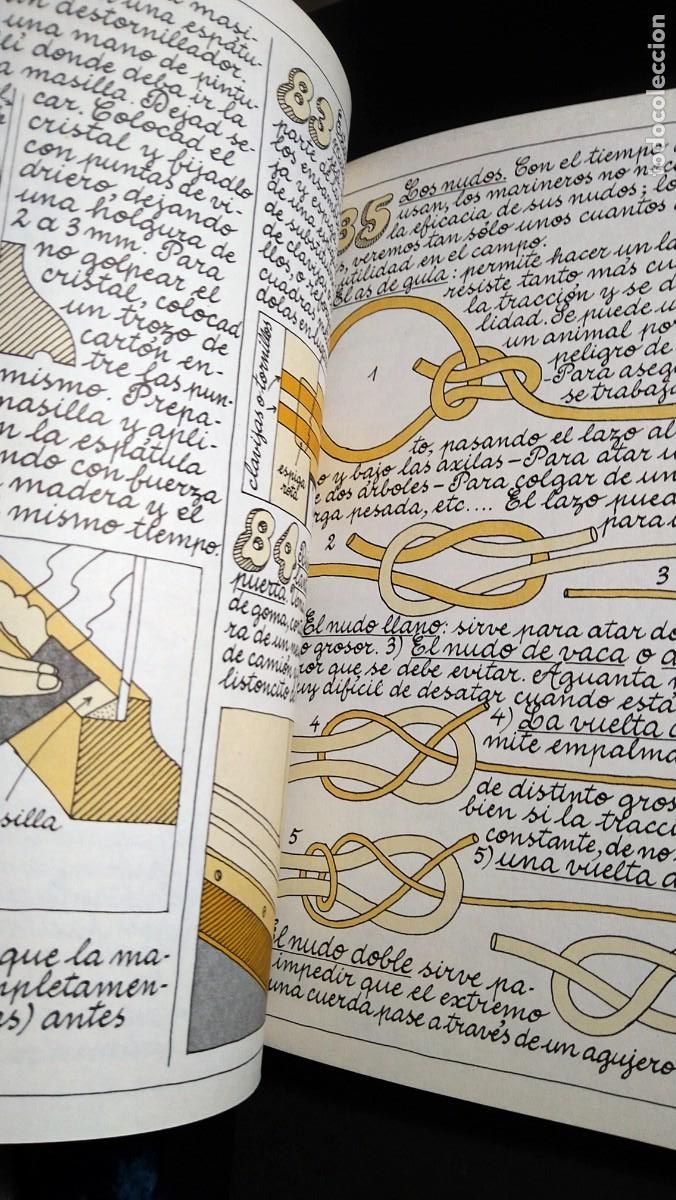 una espátu-
un destornillador.
una mano de pintu-
donde deba ir la
masilla. Dejad se-
car. Colocad el
cristal y fijadlo
con puntas de vi-
driero dejando
una holgura de
2 a 3 mm. Para
no golpear el
cristal, colocad
un trozo de
cartón en-
tre las pun-
mismo. Prepa-
masilla y apli-
la espátula
ndo con fuerza
madera y el
mismo tiempo.
silla
que la ma-
mpletamen-
as) antes
83
parte
los ensam
ja y espi
de una es
de substi
de clavija
llos, o se
cuadras
dolas en
clavijas o tornillos
espiga
rota
84
puerta
de goma, co
ra de un n
de camión,
listoncito
85 Los nudos. Con el tiempo
usan, los marineros no n
la eficacia de sus nudos; lo
s, veremos tan sólo unos cuantos
utilidad en el campo.
El as de guía: permite hacer un la
resiste tanto más cu
la tracción y se d
lidad. Se puede u
un animal por
peligro de
-Para aseg
se trabaja
1
to, pasando el lazo al
o y bajo las axilas-Para atar u
e dos árboles-Para colgar de un
rga pesada, etc.... El lazo pued
para
2
3
El nudo llano: sirve para atar do
o grosor. 3) El nudo de vaca o a
ror que se debe evitar. Aguanta
uy difícil de desatar cuando está
4
4) La vuelta d
mite empalma
de distinto gros
bien si la tracci
constante, de no
5
5) una vuelta d
El nudo doble sirve pa-
impedir que el extremo
una cuerda pase a través de un agujero
todocoleccion